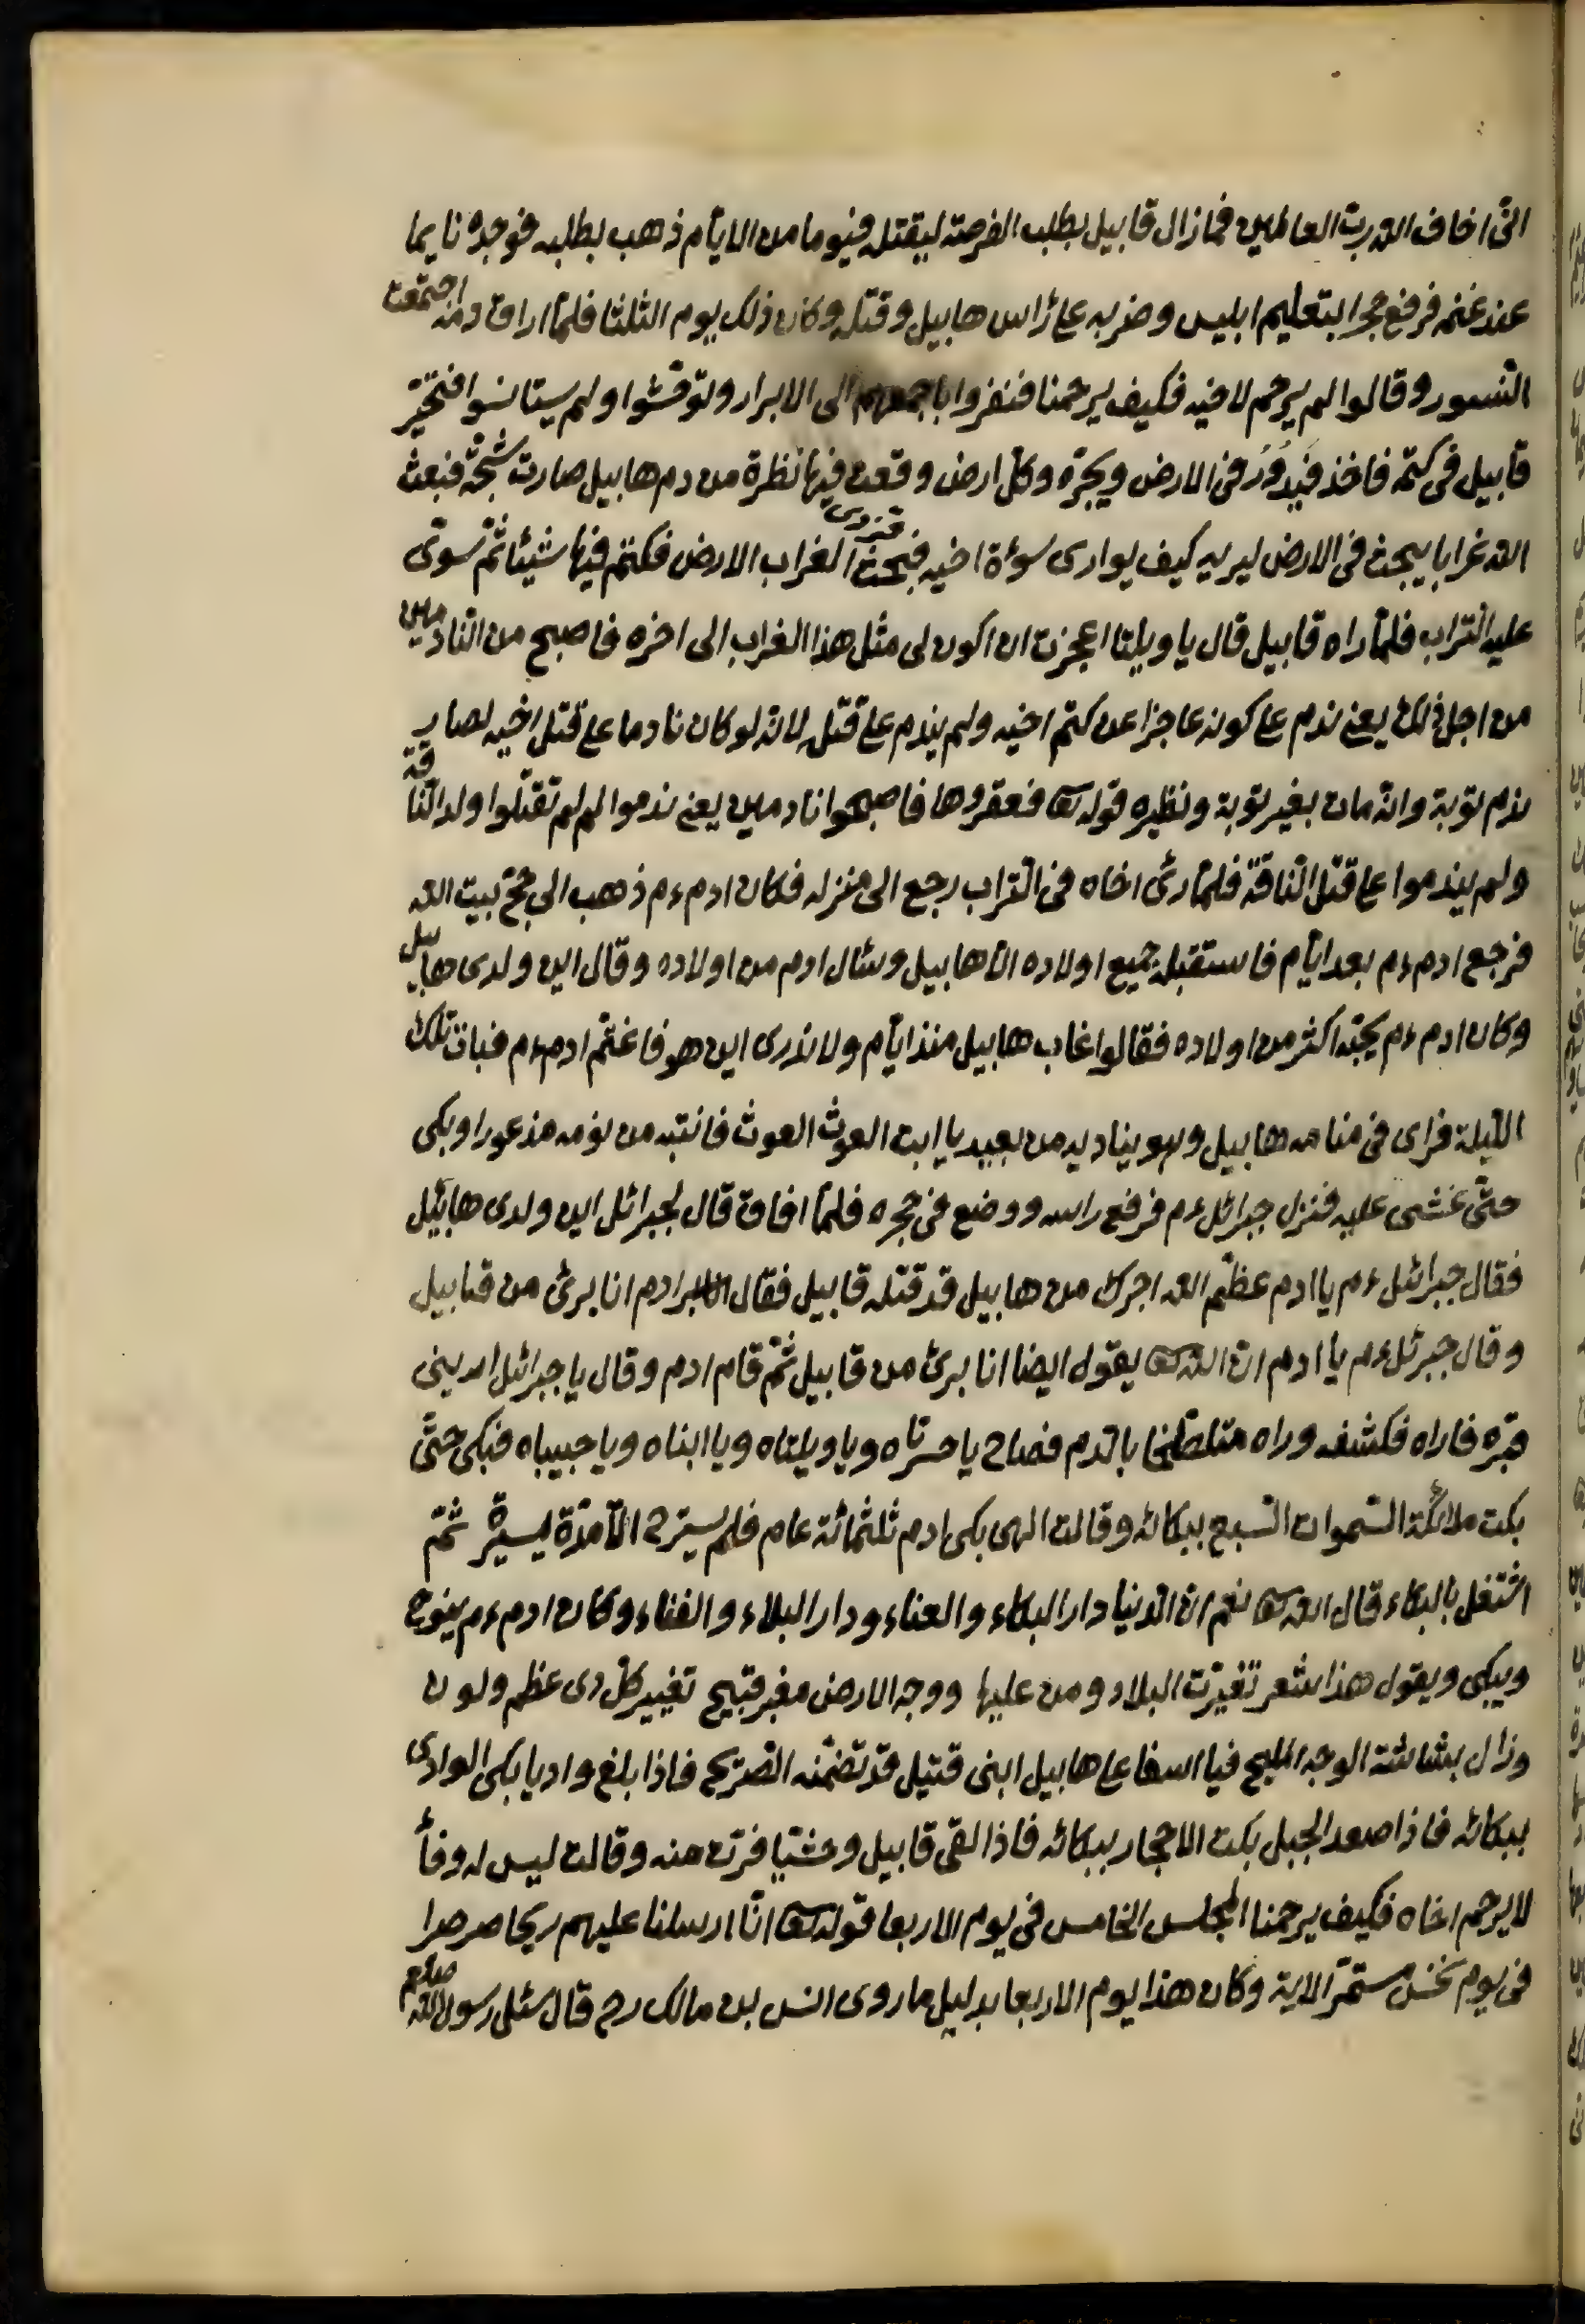 انّى اخاف الله ربّ العالمين فما زال قابيل يطلب الفرصة ليقتله فيوما من الايّام ذهب يطلبه فوجده نايما
عند غنمه فرفع حجرا بتعليم ابليس وضربه على رأس هابيل وقتله وكان ذلك يوم الثلثا فلمّا اراق دمه اجتمعت
النّسور وقالوا لم يرحم لاخيه فكيف يرحمنا فنفروا باجمعهم الى الابرار وتوحّشوا ولم يستانسوا فتحيّر
قابيل فى كتمه فاخذ فيدور فى الارض ويجرّه وكلّ ارض وقعت فيها نظرة من دم هابيل صارت شجّة فبعث
الله غرابا يبحث فى الارض ليريه كيف يوارى سوأة اخيه فبحث الغراب الارض فكتم فيها شيئا ثمّ سوّى
عليه التراب فلمّا راه قابيل قال يا ويلتا اعجزت ان اكون لى مثل هذا الغراب الى اخره فاصبح من النّادمين
من اجل ذلك يعنى ندم على كونه عاجزا عن كتم اخيه ولم يندم على قتله لانّه لو كان نادما على قتل اخيه لصار
ندم توبة وانّه مات بغير توبة ونظيره قوله تعا فعقروها فاصبحوا نادمين يعنى ندموا لم لم تقتلوا ولد النّاقة
ولم يندموا على قتل النّاقة فلمّا رئ اخاه فى التراب رجع الى منزله فكان ادم ءم ذهب الى حجّ بيت الله
فرجع ادم ءم بعد ايّام فاستقبله جميع اولاده الّا هابيل وسئال ادم من اولاده وقال اين ولدى هابيل
وكان ادم ءم يحبّه اكثر من اولاده فقالوا غاب هابيل منذ ايّام ولا ندرى اين هو فاغتمّ ادم ءم فبات تلك
اللّيلة فراى فى منامه هابيل وهو يناديه من بعيد يا ابت الغوث الغوث فانتبه من نومه مذعورا وبكى
حتّى غشى عليه فنزل جبرائل ءم فرفع راسه ووضع فى حجره فلمّا افاق قال لجبرائل اين ولدى هابيل
فقال جبرائل ءم يا ادم عظّم الله اجرك من هابيل قد قتله قابيل فقال ادم انا برئ من قابيل
وقال جبرئل ءم يا ادم انّ الله تعا يقول ايضا انا برئ من قابيل ثمّ قام ادم وقال يا جبرائل ارينى
قبره فاراه فكشفه وراه متلطّخا بالدم فصاح يا حسرتاه ويا ويلتاه ويا ابناه ويا حبيباه فبكى حتّى
بكت ملائكة السّموات السّبع ببكائه وقالت الهى بكى ادم ثلثمائة عام فلم يسترح الّا مدّة يسيرة ثمّ
اشتغل بالبكاء قال الله تعا نعم انّ الدنيا دار البكاء والعناء ودار البلاء والفناء وكان ادم ءم ينوح
ويبكى ويقول هذا شعر تغيّرت البلاد ومن عليها ووجه الارض مغبر قبيح تغيير كلّ ذى عظم ولون
وزال بشاشة الوجه المليح فيا اسفا على هابيل ابنى قتيل قد تضمّنه الضريح فاذا بلغ واديا بكى الوادى
ببكائه فاذا صعد الجبل بكت الاحجار ببكائه فاذا لقى قابيل وحشيا فرّت منه وقالت ليس له وفأ
لا يرحم اخاه فكيف يرحمنا المجلس الخامس فى يوم الاربعا قوله تعا انّا ارسلنا عليهم ريحا صرصرا
فى يوم نحس مستمرّ الاية وكان هذا يوم الاربعا بدليل ما روى انس بن مالك رح قال سئل رسول الله صلعم